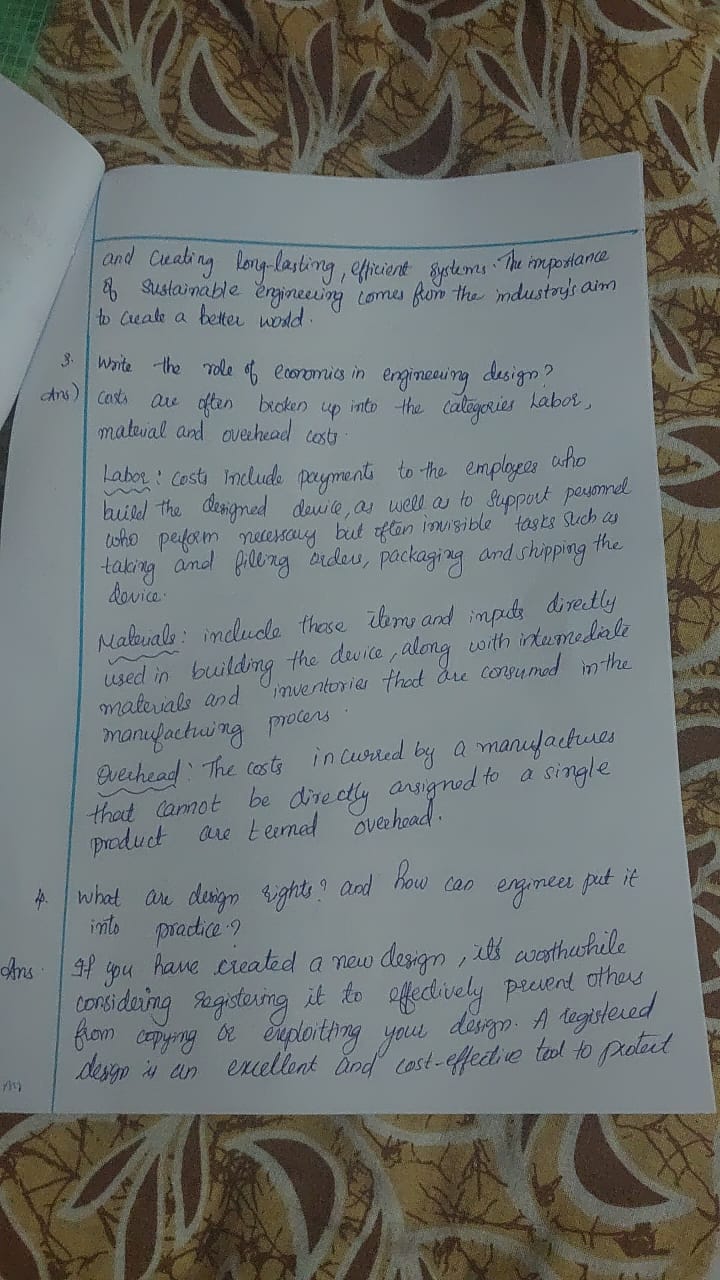 and Creating long-lasting, efficient systems. The importance
of Sustainable engineering comes from the industry's aim
to create a better world.
3. Write the role of economics in engineering design?
Ans) Costs are often broken up into the categories Labor,
material and overhead costs.
Labor : costs include payments to the employees who
build the designed device, as well as to support personnel
who perform necessary but often invisible tasks such as
taking and filling orders, packaging and shipping the
device.
Materials : include those items and inputs directly
used in building the device, along with intermediate
materials and inventories that are consumed in the
manufacturing process.
Overhead : The costs incurred by a manufactures
that cannot be directly assigned to a single
product are termed overhead.
4. What are design rights? and how can engineer put it
into practice?
Ans. If you have created a new design, it's worthwhile
considering registering it to effectively prevent others
from copying or exploitting your design. A registered
design is an excellent and cost-effective tool to protect